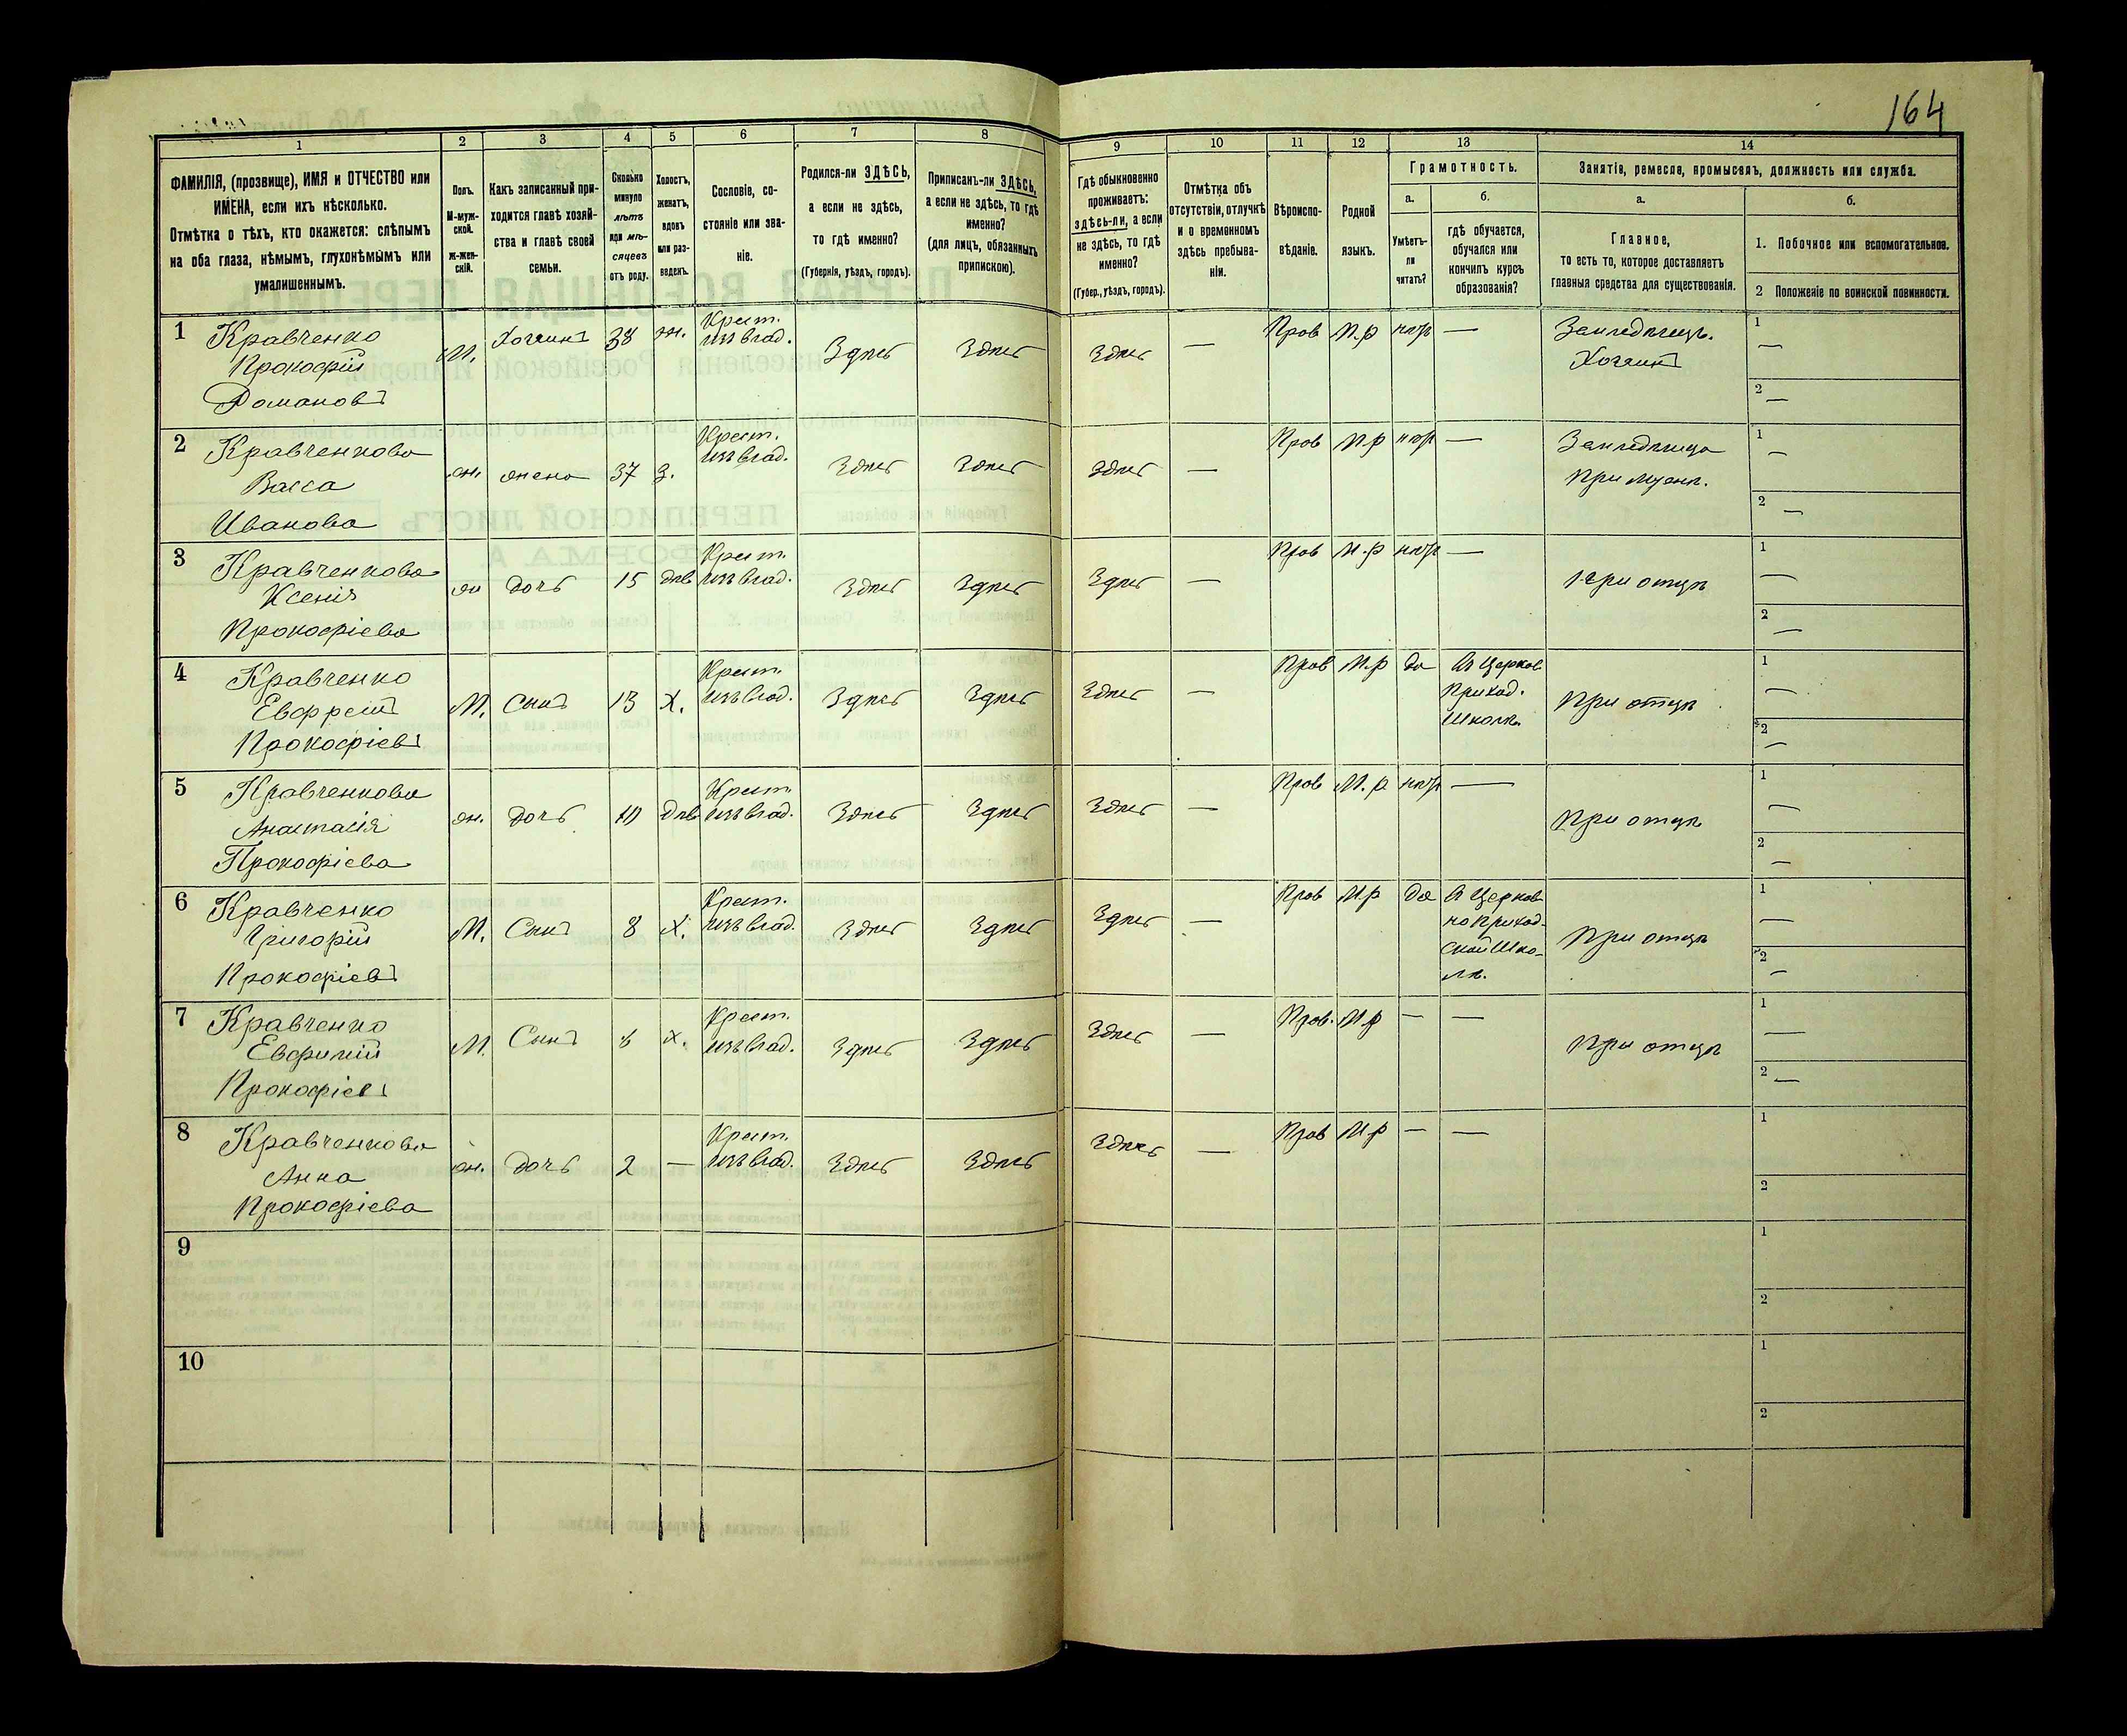 164
1 2 3 4 5 6 7 8 9 10 11 12 13 14
ФАМИЛІЯ, (прозвище), ИМЯ и ОТЧЕСТВО или
ИМЕНА, если ихъ нѣсколько.
Отмѣтка о тѣхъ, кто окажется: слѣпымъ
на оба глаза, нѣмымъ, глухонѣмымъ или
умалишеннымъ.
Полъ.
М-муж-
ской.
ж-жен-
скій.
Какъ записанный при-
ходится главѣ хозяй-
ства и главѣ своей
семьи.
Сколько
минуло
лѣтъ
или мѣ-
сяцевъ
отъ роду.
Холостъ,
женатъ,
вдовъ
или раз-
веденъ.
Сословіе, со-
стояніе или зва-
ніе.
Родился-ли ЗДѢСЬ,
а если не здѣсь,
то гдѣ именно?
(Губернія, уѣздъ, городъ).
Приписанъ-ли ЗДѢСЬ,
а если не здѣсь, то гдѣ
именно?
(для лицъ, обязанныхъ
припискою).
Гдѣ обыкновенно
проживаетъ:
здѣсь-ли, а если
не здѣсь, то гдѣ
именно?
(Губер., уѣздъ, городъ).
Отмѣтка объ
отсутствіи, отлучкѣ
и о временномъ
здѣсь пребыва-
ніи.
Вѣроиспо-
вѣданіе.
Родной
языкъ.
Грамотность.
а.
Умѣетъ-
ли
читать?
б.
гдѣ обучается,
обучался или
кончилъ курсъ
образованія?
Занятіе, ремесло, промыселъ, должность или служба.
а.
Главное,
то есть то, которое доставляетъ
главныя средства для существованія.
б.
1. Побочное или вспомогательное.
2 Положеніе по воинской повинности.
1 Кравченко
Прокофій
Романовъ
М. Хозяинъ 38 ж. Крест.
изъ влад. Здѣсь Здѣсь Здѣсь — Прав М.р нѣтъ — Земледѣлецъ.
Хозяинъ
1 —
2 —
2 Кравченкова
Васса
Иванова
ж. жена 37 з. Крест.
изъ влад. Здѣсь Здѣсь Здѣсь — Прав М.р нѣтъ — Земледѣлица
При мужѣ.
1 —
2 —
3 Кравченкова
Ксенія
Прокофіева
ж дочь 15 дѣв Крест.
изъ влад. Здѣсь Здѣсь Здѣсь — Прав М.р нѣтъ — При отцѣ
1 —
2 —
4 Кравченко
Евфремъ
Прокофіевъ
М. Сынъ 13 Х. Крест.
изъ влад. Здѣсь Здѣсь Здѣсь — Прав М.р да Въ Церков
Приход.
Школѣ
При отцѣ
1 —
2 —
5 Кравченкова
Анастасія
Прокофіева
ж. дочь 10 дѣв Крест.
изъ влад. Здѣсь Здѣсь Здѣсь — Прав М.р нѣтъ — При отцѣ
1 —
2 —
6 Кравченко
Григорій
Прокофіевъ
М. Сынъ 8 Х. Крест.
изъ влад. Здѣсь Здѣсь Здѣсь — Прав М.р да Въ Церков
но Приход-
ской Шко-
лѣ.
При отцѣ
1 —
2 —
7 Кравченко
Евфимій
Прокофіевъ
М. Сынъ х. Крест.
изъ влад. Здѣсь Здѣсь Здѣсь — Прав. М.р — — При отцѣ
1 —
2 —
8 Кравченкова
Анна
Прокофіева
ж. дочь 2 — Крест.
изъ влад. Здѣсь Здѣсь Здѣсь — Прав М.р — —
1
2
9
1
2
10
1
2